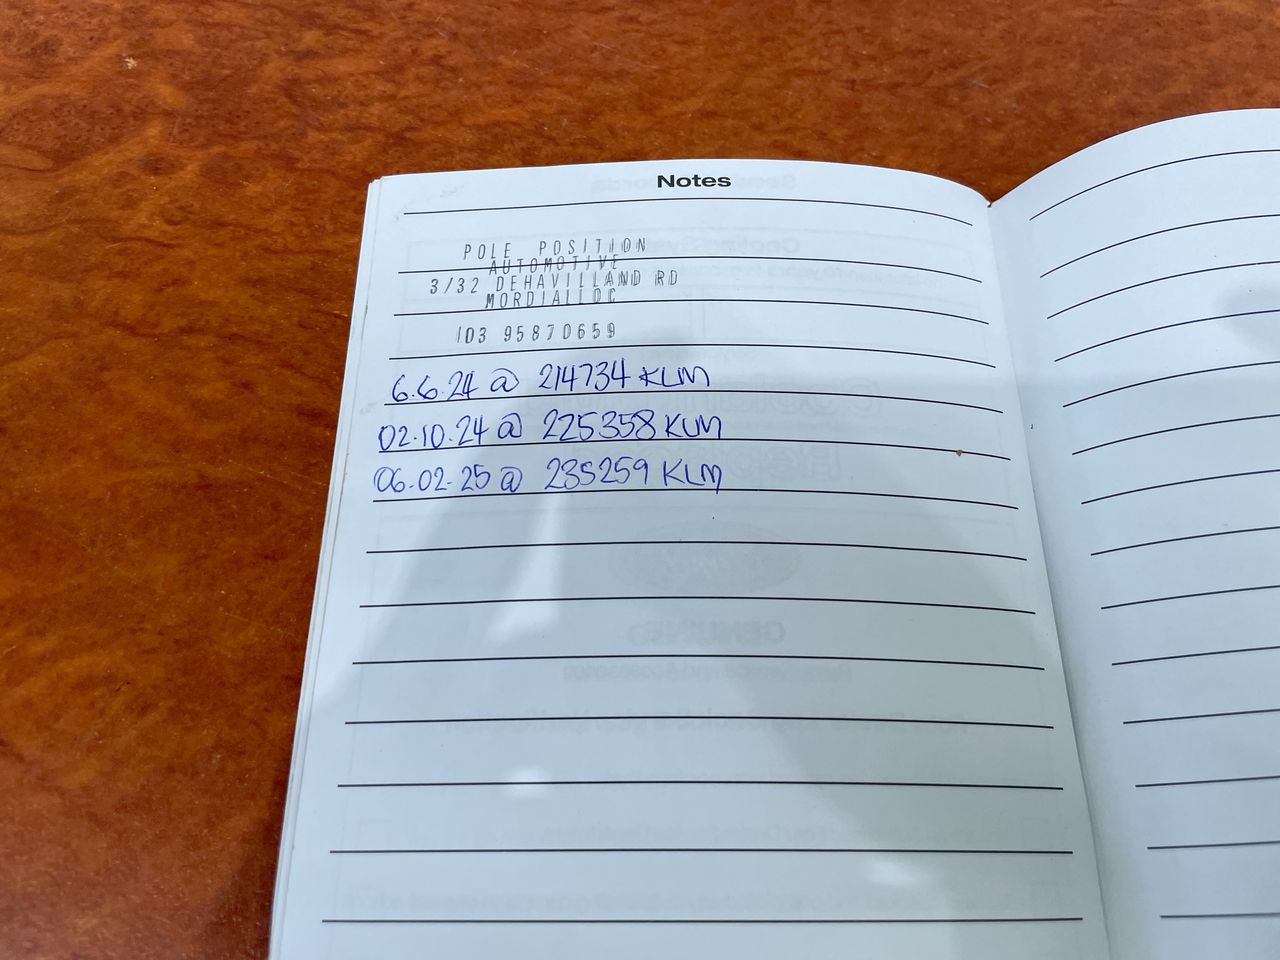 Notes
POLE POSITION
AUTOMOTIVE
3/32 DEHAVILLAND RD
MORDIALLOC
(03 95870659
6.6.24 @ 214734 KLM
02.10.24 @ 225358 KLM
06.02.25 @ 235259 KLM